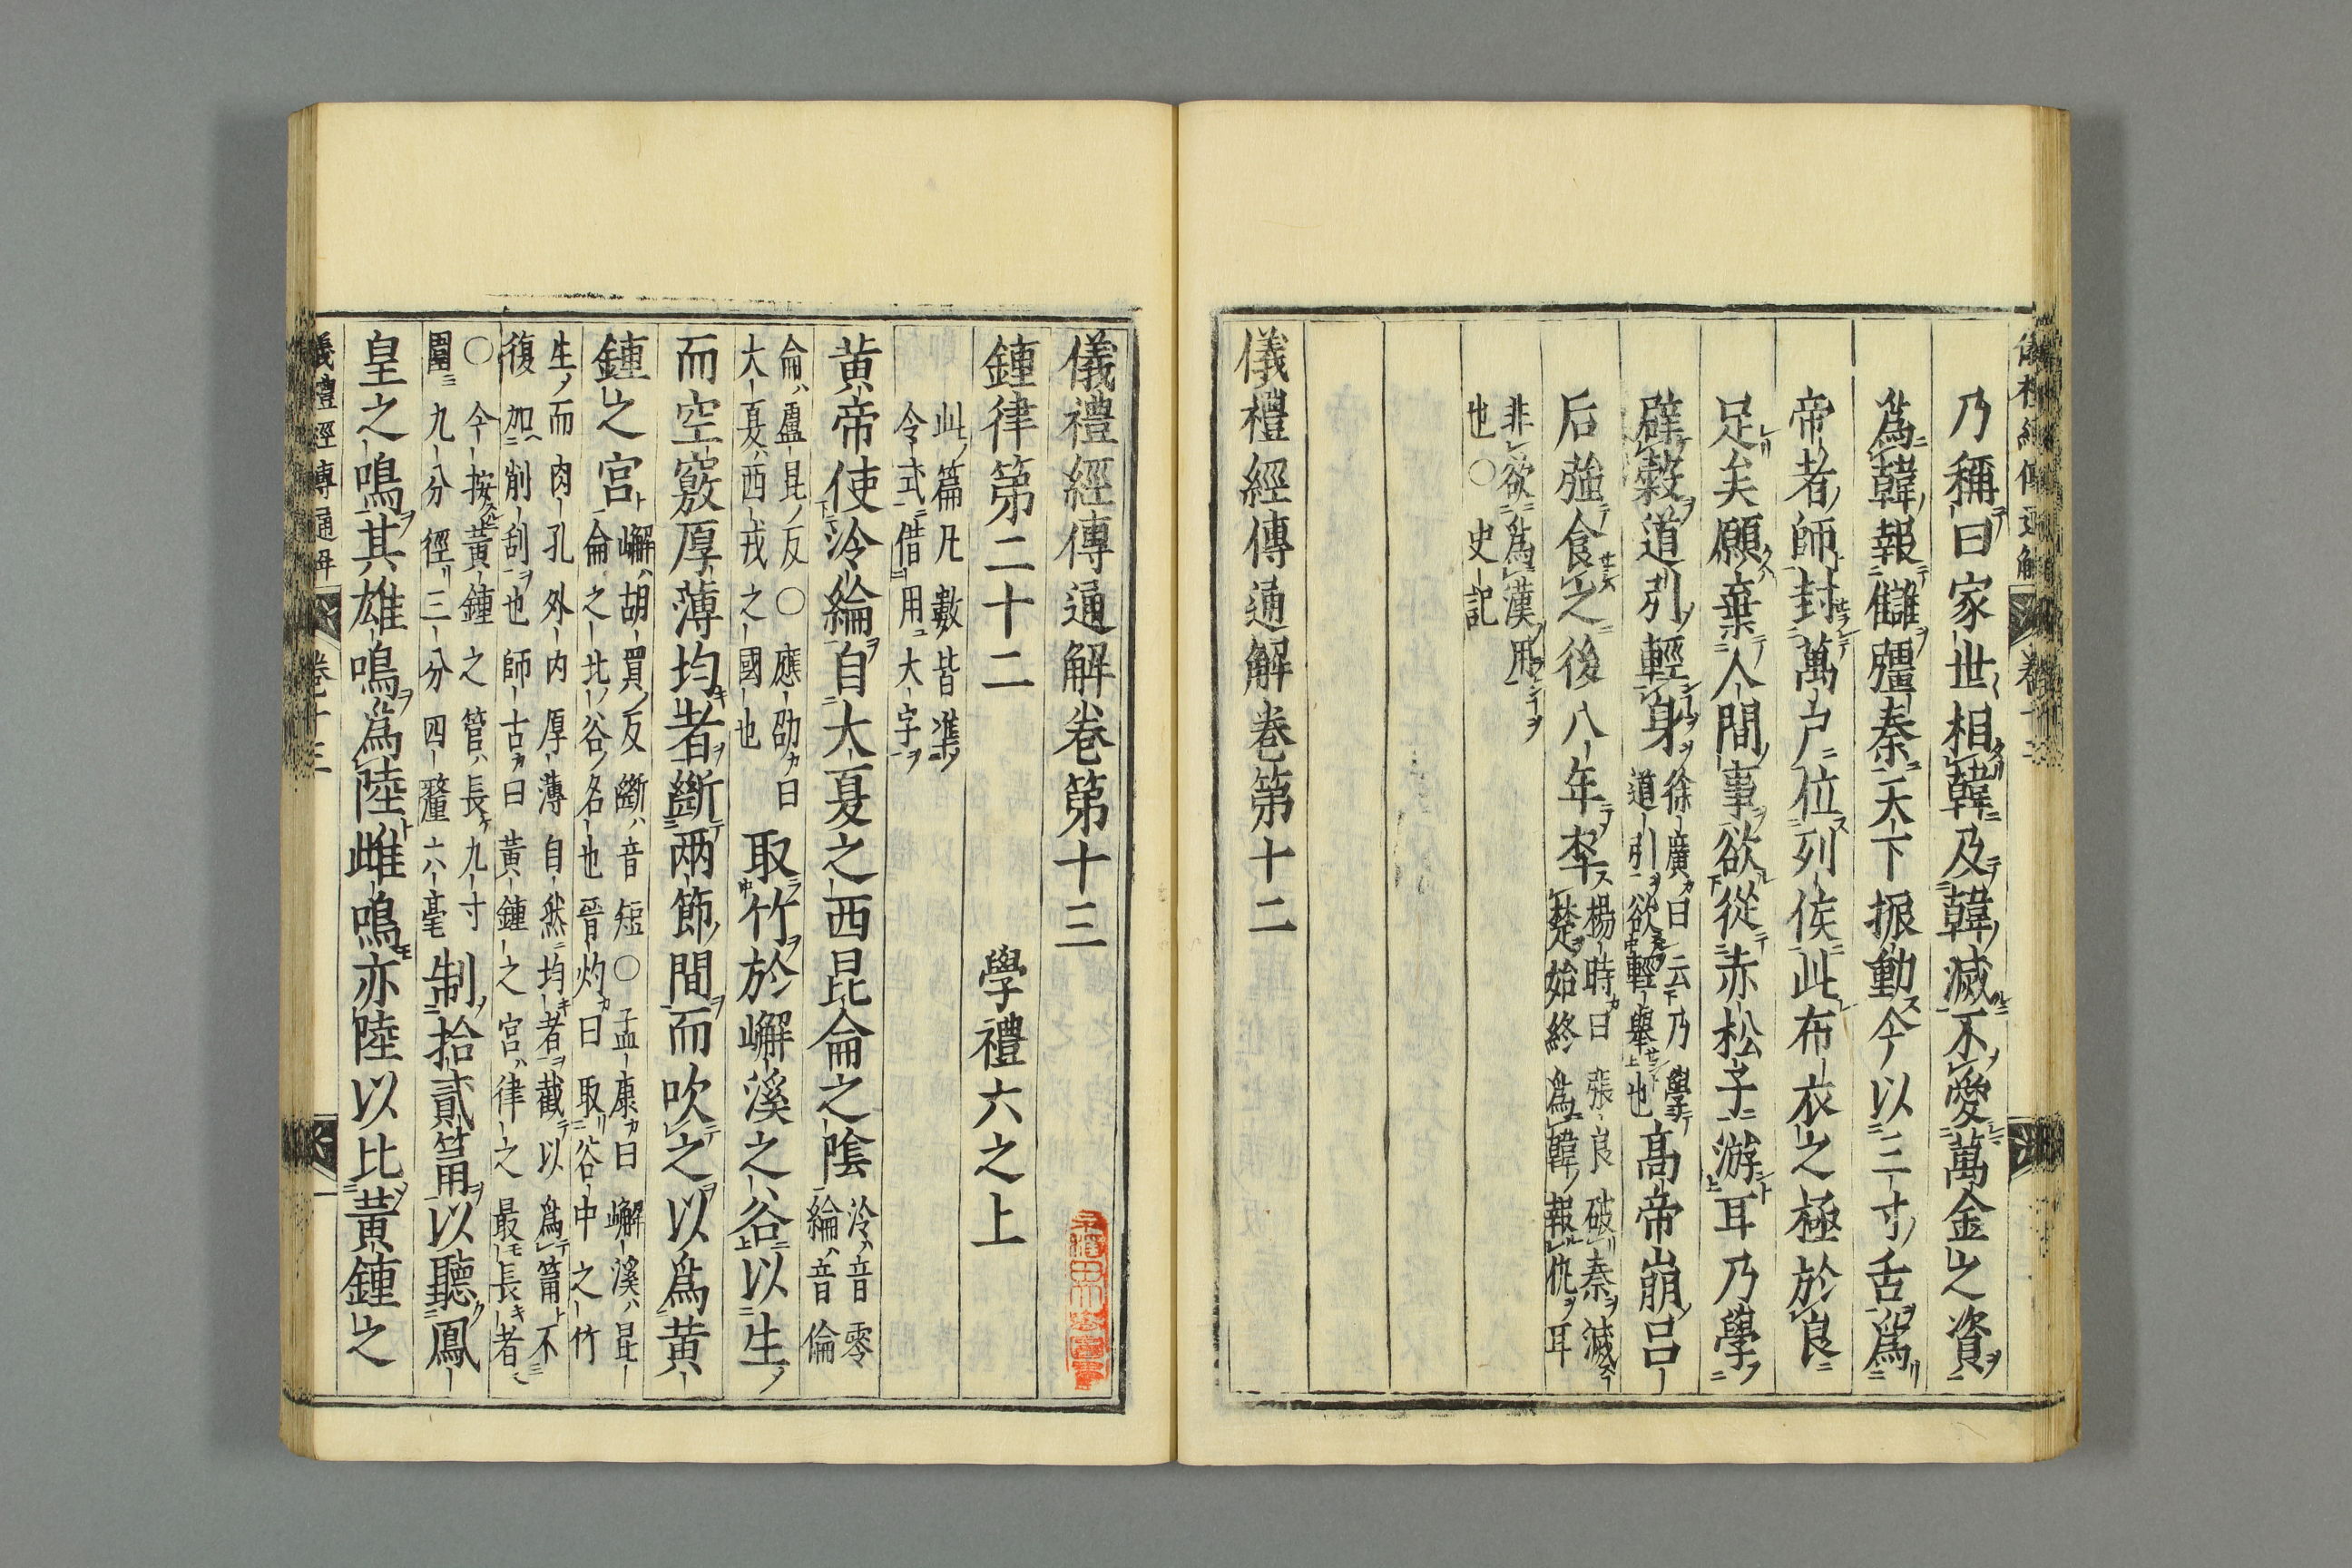 乃稱曰家世相韓及韓滅不愛萬金之資
為韓報讎彊秦天下振動今以三寸舌為
帝者師封萬户位列侯此布衣之極於良
足矣願棄人間事欲從赤松子游耳乃學
辟穀道引輕身徐廣曰云乃學
道引欲輕舉也高帝崩呂
后強食之後八年卒楊時曰張良破秦滅
楚始終為韓報仇耳
非欲為漢用
也○史記
儀禮經傳通解卷第十二
儀禮經傳通解卷第十三
鍾律第二十二 學禮六之上
此篇凡數皆準
令式借用大字
黃帝使泠綸自大夏之西昆侖之陰泠音零
綸音倫
侖盧昆反○應劭曰
大夏西戎之國也取竹於嶰溪之谷以生
而空竅厚薄均者斷兩節間而吹之以為黃
鍾之宮嶰胡買反斷音短○孟康曰嶰溪昆
侖之北谷名也晉灼曰取谷中之竹
生而肉孔外内厚薄自然均者截以為筩不
復加削刮也師古曰黃鍾之宮律之最長者
○今按黃鍾之管長九寸
圍九分徑三分四釐六毫制拾貳筩以聽鳳
皇之鳴其雄鳴為陸雌鳴亦陸以比黃鍾之
儀禮經傳通解 卷十三 一